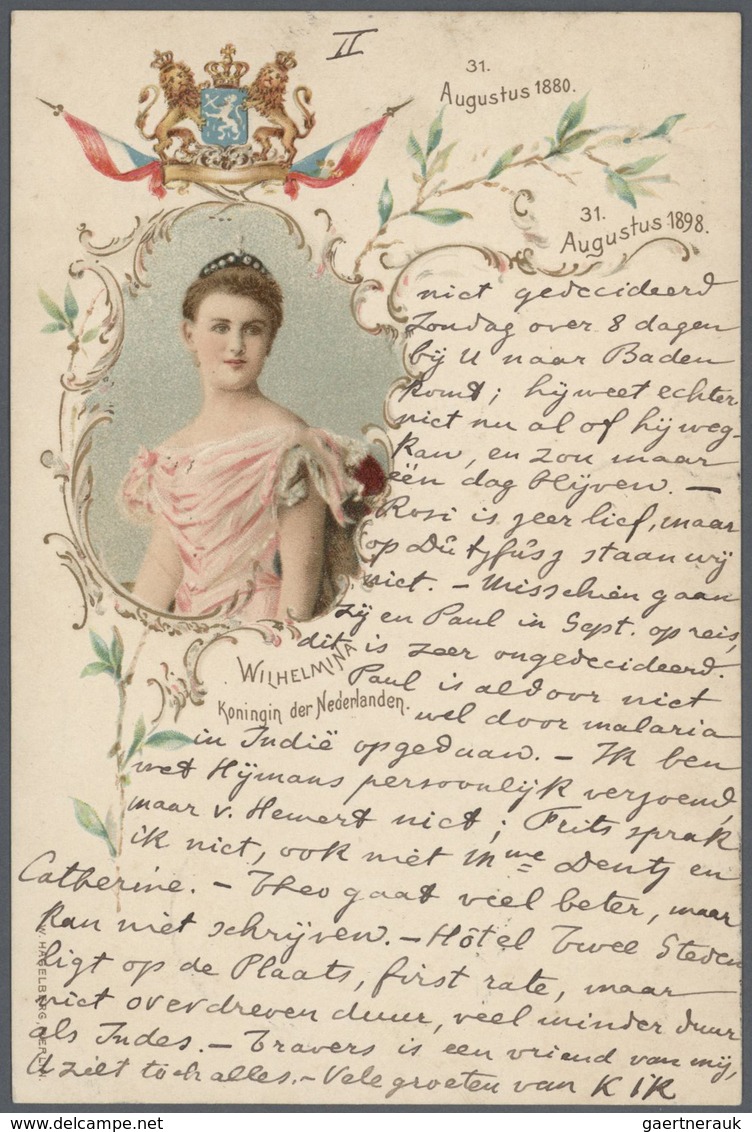 II
31.
Augustus 1880.
31.
Augustus 1898.
niet gedecideerd
Zondag over 8 dagen
bij U naar Baden
komt; hij weet echter
niet nu al of hij weg-
kan, en zou maar
één dag blijven. —
Rosi is zeer lief, maar
op staan wij
niet. – Misschien gaan
zij en Paul in Sept. op reis,
dit is zeer ongedecideerd.
WILHELMINA
Koningin der Nederlanden.
Paul is aldoor niet
wel door malaria
in Indië opgedaan. – Ik ben
met Hijmans persoonlijk verzoend,
maar v. Hemert niet; Frits sprak
ik niet, ook niet Mme Dentz en
Catherine. – Theo gaat veel beter, maar
kan niet schrijven. – Hôtel Twee Steden
ligt op de Plaats, first rate, maar
niet overdreven duur, veel minder duur
als Indes. – Travers is een vriend van mij,
U ziet toch alles. – Vele groeten van KiK
W. HAGELBERG, BERLIN.
gaertnerauk